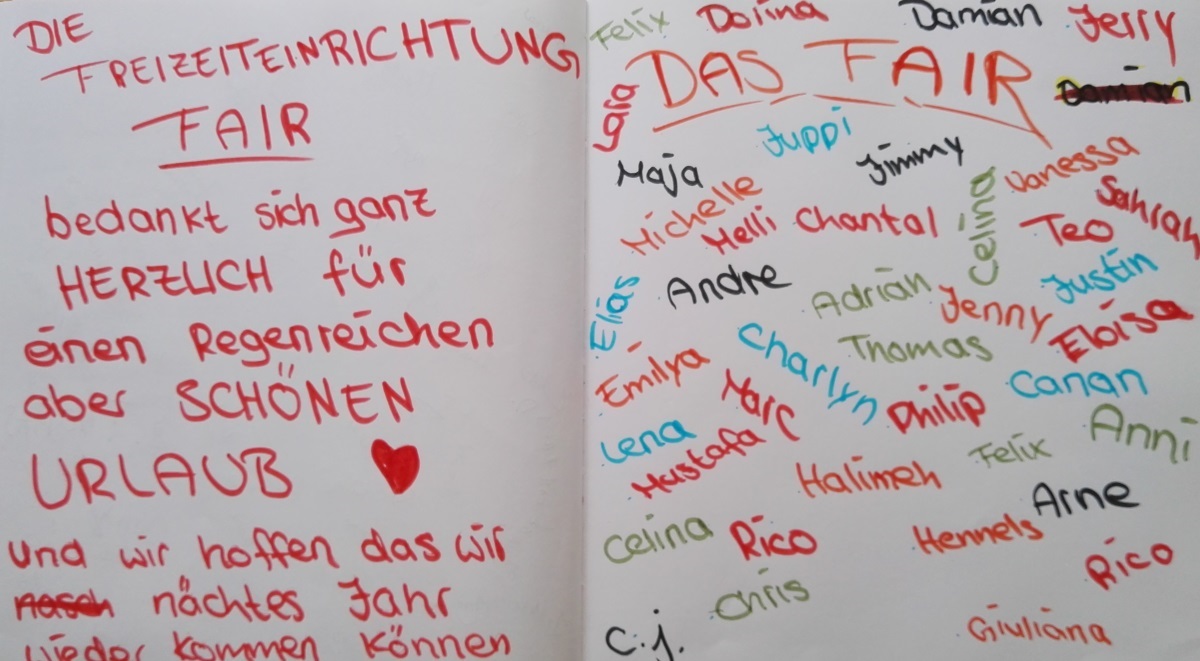 DIE
FREIZEITEINRICHTUNG
FAIR
bedankt sich ganz
HERZLICH für
einen Regenreichen
aber SCHÖNEN
URLAUB
und wir hoffen das wir
nächtes Jahr
wieder kommen können
Felix Dorina Damian Jerry
DAS FAIR
Damian
Lara
Juppi
Jimmy
Maja
Vanessa
Michelle
Melli Chantal
Celina
Teo
Sahrah
Elias
Andre
Adrian
Justin
Jenny
Eloisa
Charlyn
Thomas
Emilya
Marc
Philip
Canan
Lena
Anni
Mustafa
Halimeh
Felix
Arne
Celina
Rico
Hennels
Rico
Chris
C.j.
Giuliana